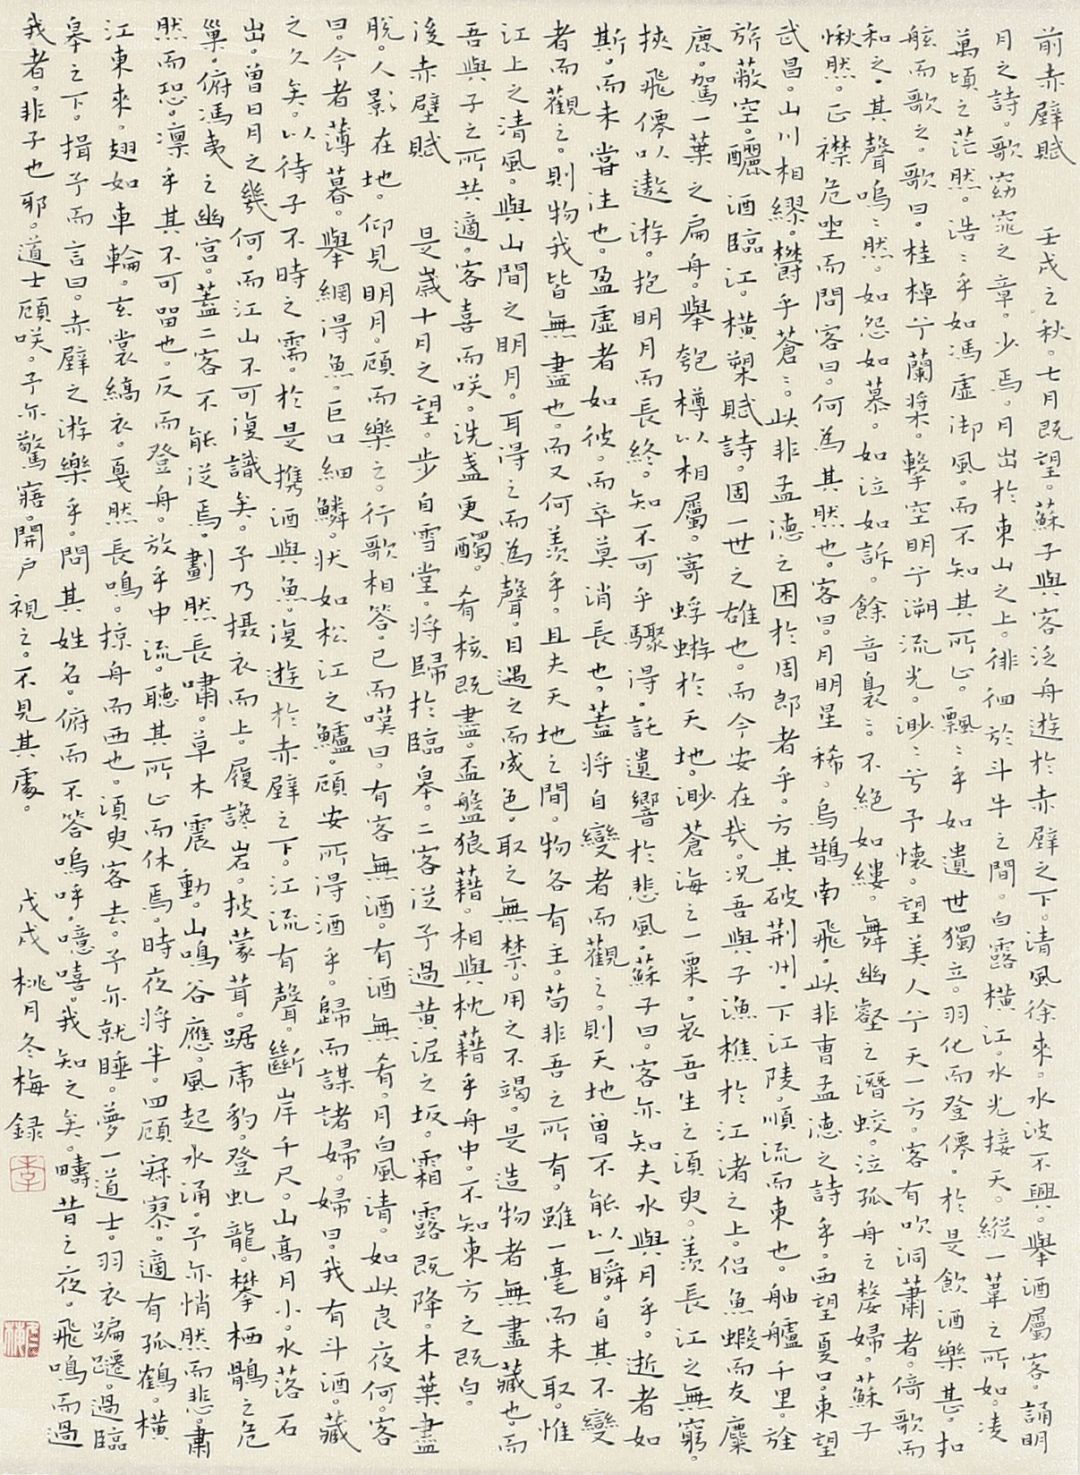 前赤壁賦　壬戌之秋。七月既望。蘇子與客泛舟遊於赤壁之下。清風徐來。水波不興。舉酒屬客。誦明
月之詩。歌窈窕之章。少焉。月出於東山之上。徘徊於斗牛之間。白露橫江。水光接天。縱一葦之所如。凌
萬頃之茫然。浩〻乎如馮虛御風。而不知其所止。飄〻乎如遺世獨立。羽化而登僊。於是飲酒樂甚。扣
舷而歌之。歌曰。桂棹兮蘭槳。擊空明兮溯流光。渺〻兮予懷。望美人兮天一方。客有吹洞蕭者。倚歌而
和之。其聲嗚〻然。如怨如慕。如泣如訴。餘音裊〻。不絕如縷。舞幽壑之潛蛟。泣孤舟之嫠婦。蘇子
愀然。正襟危坐而問客曰。何為其然也。客曰。月明星稀。烏鵲南飛。此非曹孟德之詩乎。西望夏口。東望
武昌。山川相繆。欝乎蒼〻。此非孟德之困於周郎者乎。方其破荊州。下江陵。順流而東也。舳艫千里。旌
旂蔽空。釃酒臨江。橫槊賦詩。固一世之雄也。而今安在哉。況吾與子漁樵於江渚之上。侶魚蝦而友麋
鹿。駕一葉之扁舟。舉匏樽以相屬。寄蜉蝣於天地。渺蒼海之一粟。哀吾生之須臾。羨長江之無窮。
挾飛僊以遨游。抱明月而長終。知不可乎驟得。託遺響於悲風。蘇子曰。客亦知夫水與月乎。逝者如
斯。而未嘗往也。盈虛者如彼。而卒莫消長也。蓋將自變者而觀之。則天地曾不能以一瞬。自其不變
者而觀之。則物我皆無盡也。而又何羨乎。且夫天地之間。物各有主。苟非吾之所有。雖一毫而未取。惟
江上之清風。與山間之明月。耳得之而為聲。目遇之而成色。取之無禁。用之不竭。是造物者無盡藏也。而
吾與子之所共適。客喜而咲。洗盞更酌。肴核既盡。盃盤狼藉。相與枕藉乎舟中。不知東方之既白。
後赤壁賦　是歲十月之望。步自雪堂。將歸於臨皋。二客從予過黃泥之坂。霜露既降。木葉盡
脫。人影在地。仰見明月。顧而樂之。行歌相答。已而嘆曰。有客無酒。有酒無肴。月白風清。如此良夜何。客
曰。今者薄暮。舉網得魚。巨口細鱗。狀如松江之鱸。顧安所得酒乎。歸而謀諸婦。婦曰。我有斗酒。藏
之久矣。以待子不時之需。於是携酒與魚。復遊於赤壁之下。江流有聲。斷岸千尺。山高月小。水落石
出。曾日月之幾何。而江山不可復識矣。予乃攝衣而上。履讒岩。披蒙茸。踞虎豹。登虬龍。攀栖鶻之危
巢。俯馮夷之幽宮。蓋二客不能從焉。劃然長嘯。草木震動。山鳴谷應。風起水涌。予亦悄然而悲。肅
然而恐。凛乎其不可留也。反而登舟。放乎中流。聽其所止而休焉。時夜將半。四顧寂寥。適有孤鶴。橫
江東來。翅如車輪。玄裳縞衣。戛然長鳴。掠舟而西也。須臾客去。予亦就睡。夢一道士。羽衣蹁躚。過臨
皋之下。揖予而言曰。赤壁之游樂乎。問其姓名。俯而不答。嗚呼。噫嘻。我知之矣。疇昔之夜。飛鳴而過
我者。非子也耶。道士顧咲。予亦驚寤。開戶視之。不見其處。　戊戌桃月冬梅録
李